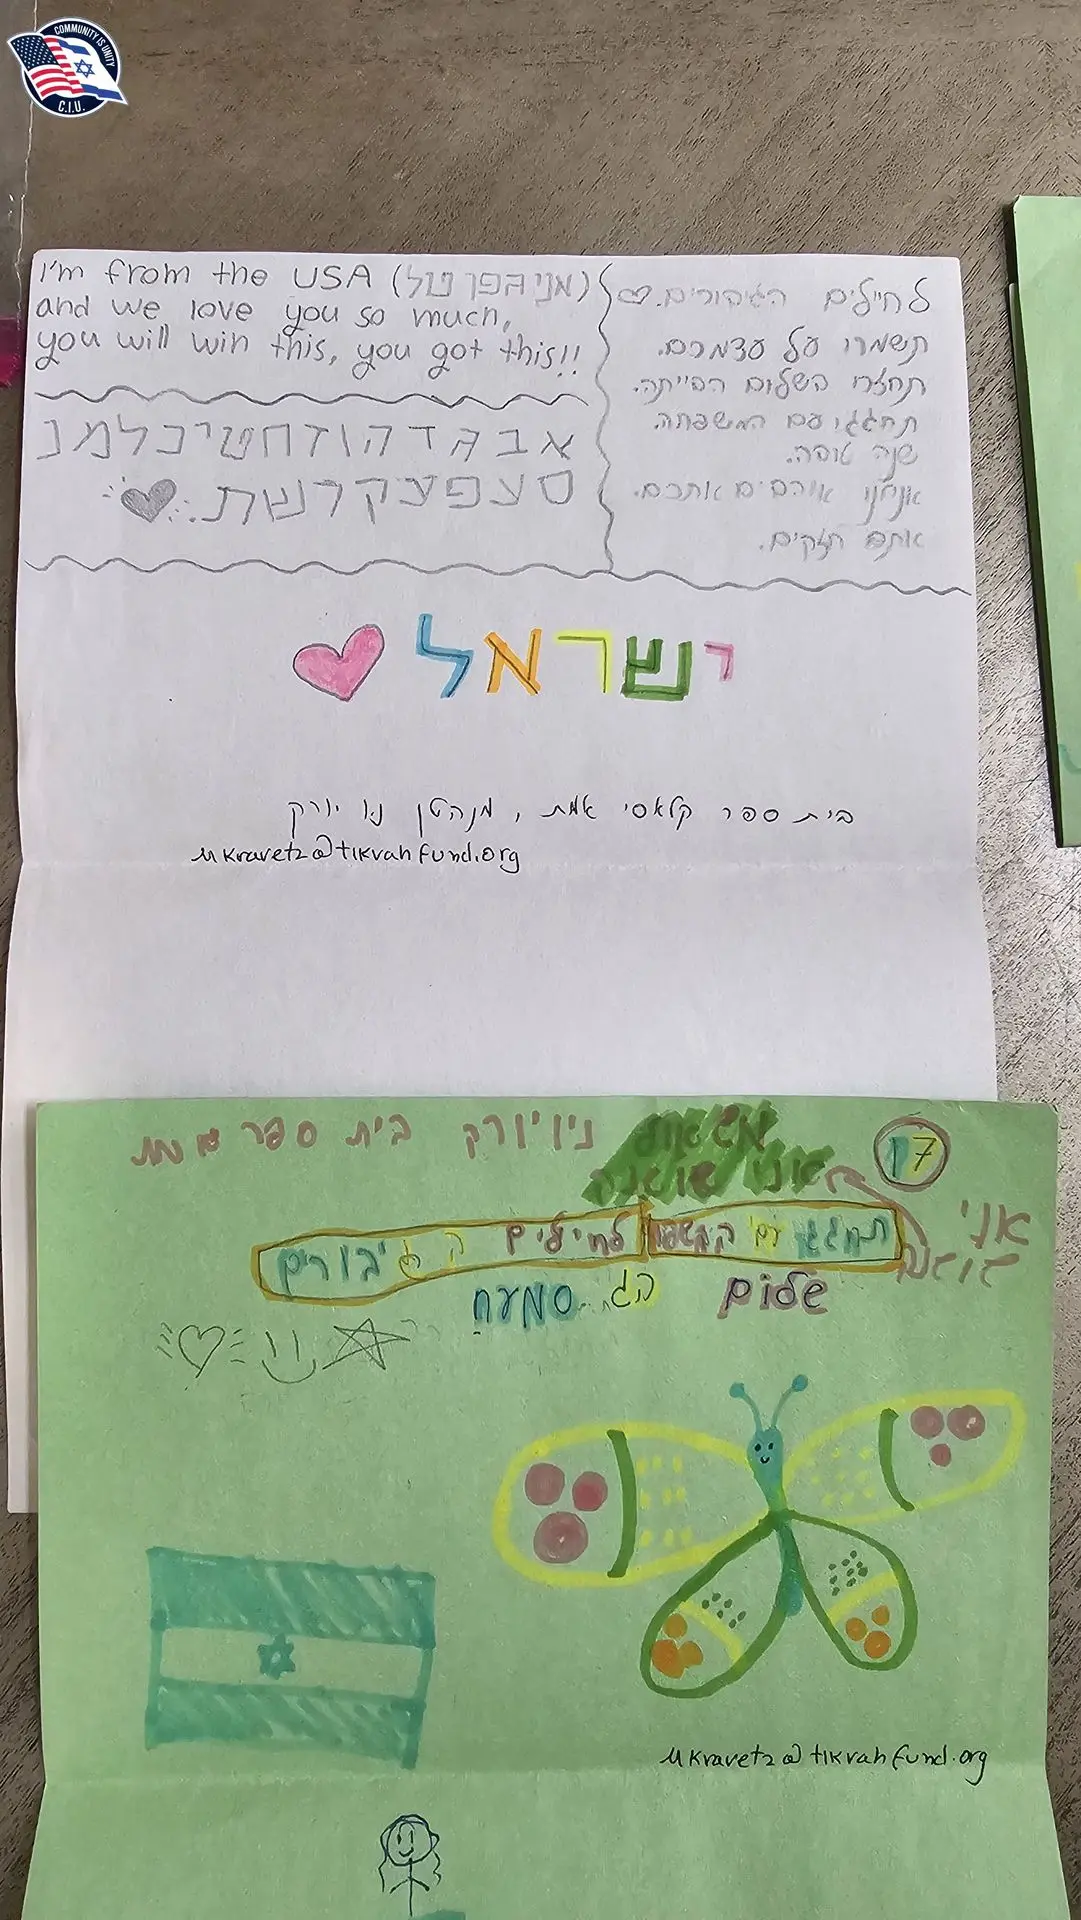 COMMUNITY IS UNITY
C.I.U.
I'm from the USA (אני
and we love you so much,
you will win this, you got this!!
אבגדהוזחטיכלמנ
סעפצקרשת
לחיילים הגיבורים.
תשמרו על עצמכם.
תחזרו בשלום הבייתה.
תחגגו עם המשפחה.
שנה טובה.
אנחנו אוהבים אתכם.
אתם חזקים.
ישראל
בית ספר קלאסי אמת, מנהטן ניו יורק
mkravetz@tikvahfund.org
ניו יורק בית ספר אמת
אני
תחגגו עם
לחיילים הגיבורים
שלום
חג סמעח
mkravetz@tikvahfund.org